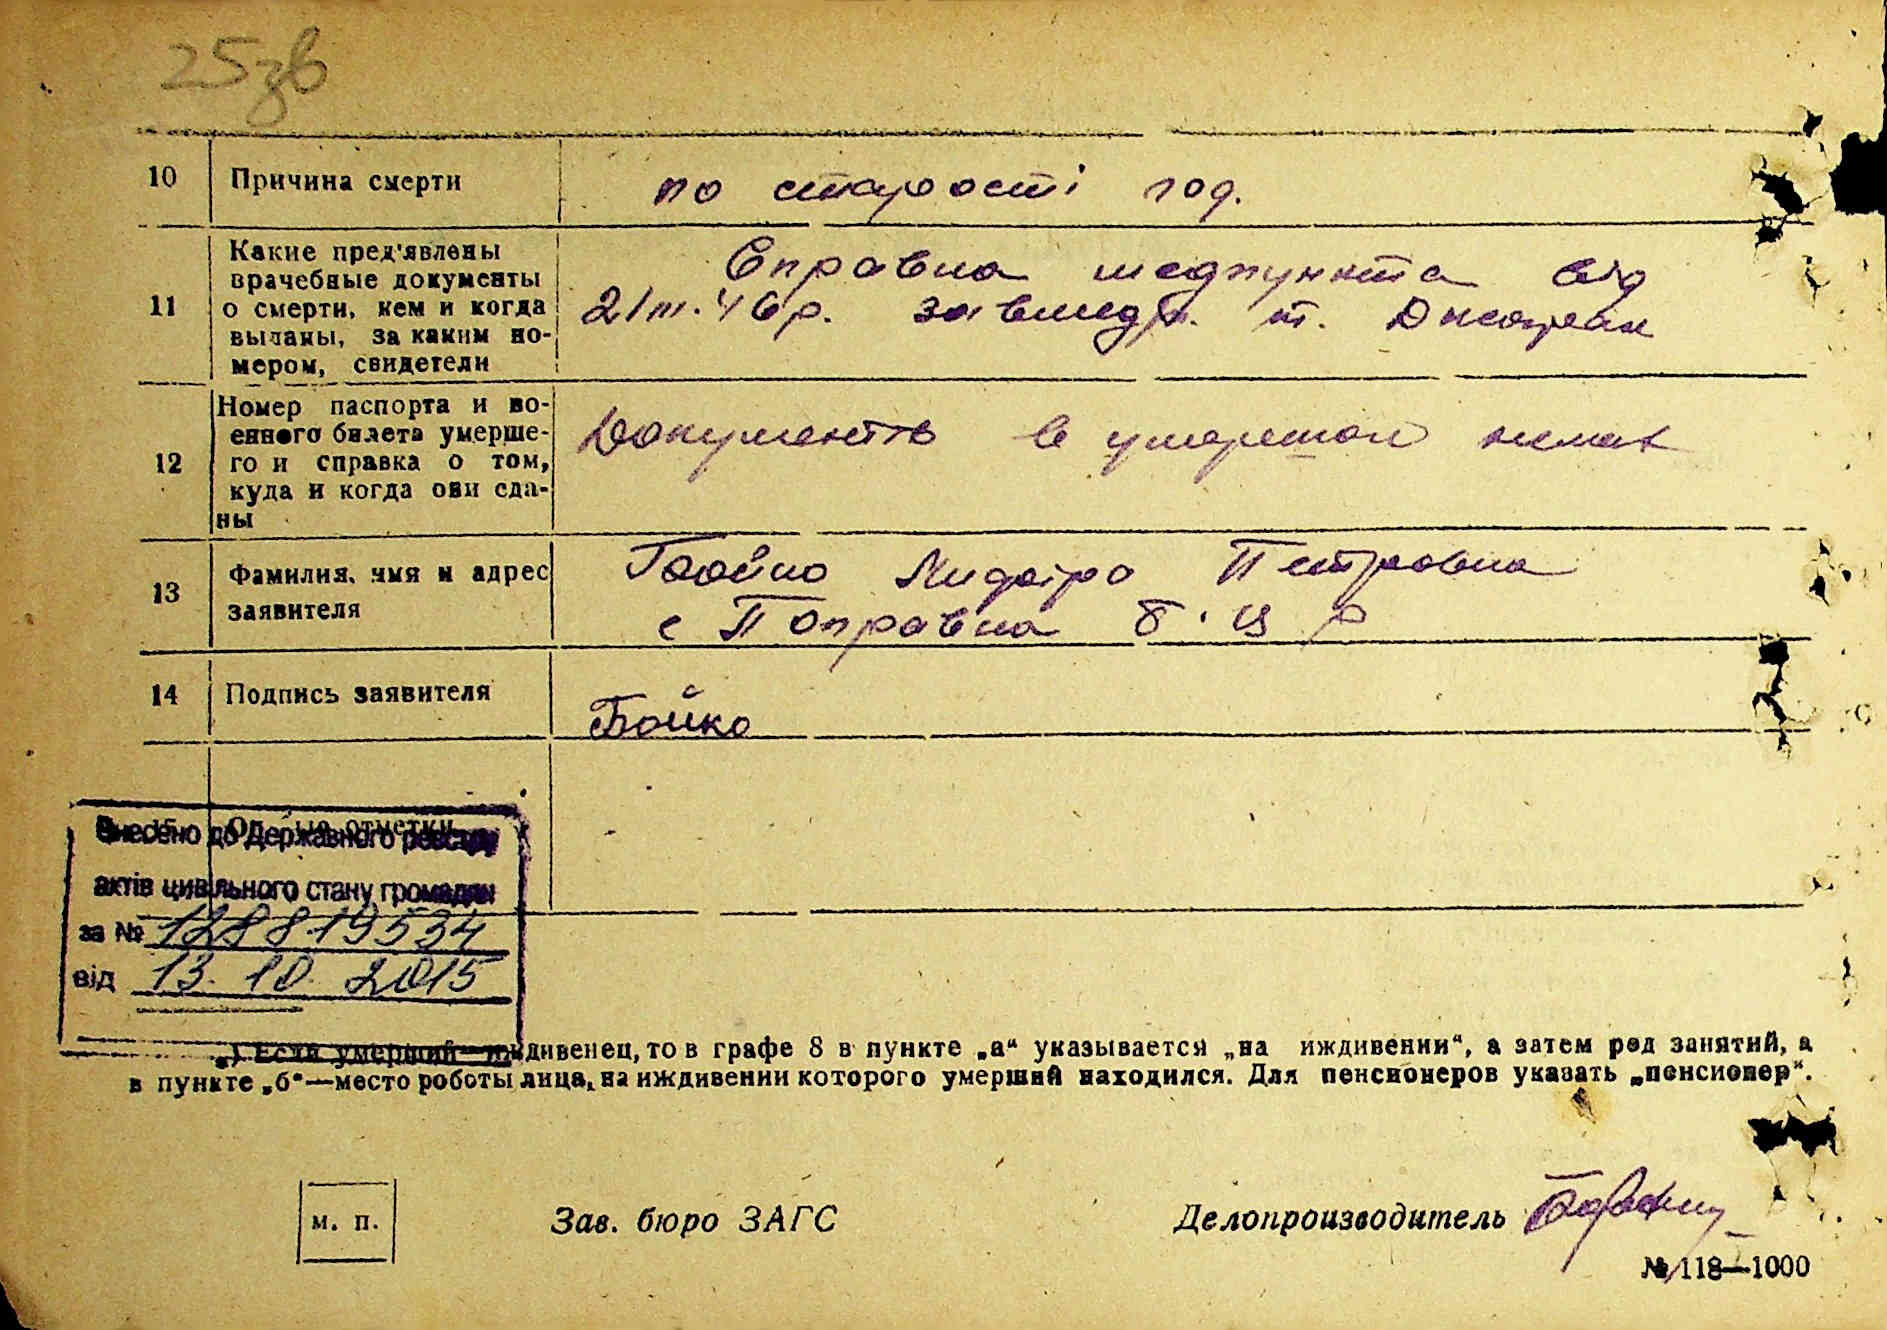 25зв
10 Причина смерти по старості год.
11 Какие пред'явлены
врачебные документы
о смерти, кем и когда
выданы, за каким но-
мером, свидетели
Справка медпункта від
21/III.46р. завмедп. т.
12 Номер паспорта и во-
енного билета умерше-
го и справка о том,
куда и когда они сда-
ны
Документів в умершої немає
13 Фамилия, имя и адрес
заявителя
Бойко Петровна
с Поправка Б.Ц р
14 Подпись заявителя Бойко
отметки
Внесено до Державного реєстру
актів цивільного стану громадян
за № 128819534
від 13.10.2015
„) Если умерший иждивенец, то в графе 8 в пункте „а“ указывается „на иждивении“, а затем род занятий, а
в пункте „б“—место роботы лица, на иждивении которого умерший находился. Для пенсионеров указать „пенсионер“.
м. п. Зав. бюро ЗАГС Делопроизводитель
№ 118—1000